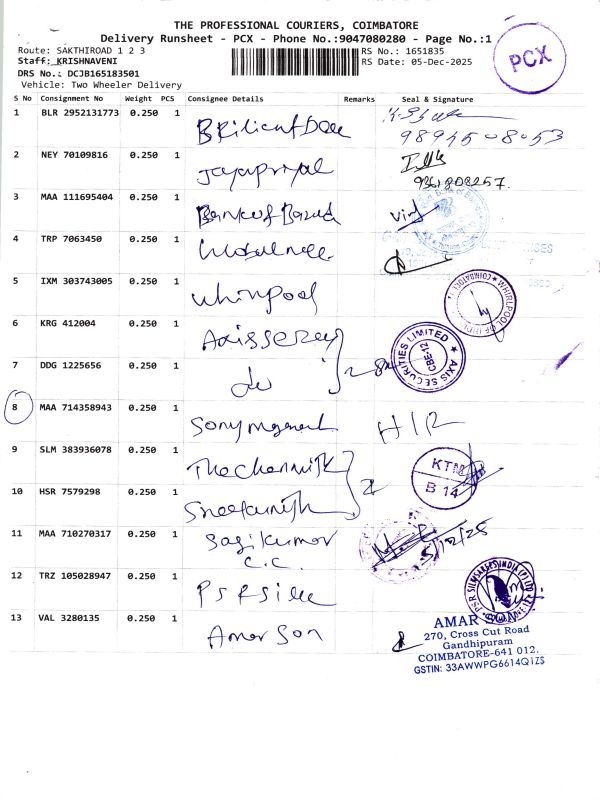 THE PROFESSIONAL COURIERS, COIMBATORE
Delivery Runsheet - PCX - Phone No.:9047080280 - Page No.:1
Route: SAKTHIROAD 1 2 3
RS No.: 1651835
Staff: KRISHNAVENI
RS Date: 05-Dec-2025
DRS No.: DCJB165183501
Vehicle: Two Wheeler Delivery
PCX
S No Consignment No Weight PCS Consignee Details Remarks Seal & Signature
1 BLR 2952131773 0.250 1
2 NEY 70109816 0.250 1
3 MAA 111695404 0.250 1 Bank of
4 TRP 7063450 0.250 1
5 IXM 303743005 0.250 1 Whirlpool
WHIRLPOOL OF COIMBATORE
6 KRG 412004 0.250 1 Axis
AXIS SECURITIES LIMITED CBE-12
7 DDG 1225656 0.250 1 do
8 MAA 714358943 0.250 1 Sony HIR
9 SLM 383936078 0.250 1 The Chennai
KTM
B 14
10 HSR 7579298 0.250 1
11 MAA 710270317 0.250 1 Sasikumar
C.C.
5/12/25
12 TRZ 105028947 0.250 1 PSR
13 VAL 3280135 0.250 1 Amar Son
AMAR SON
270, Cross Cut Road
Gandhipuram
COIMBATORE-641 012.
GSTIN: 33AWWPG6614Q1ZS